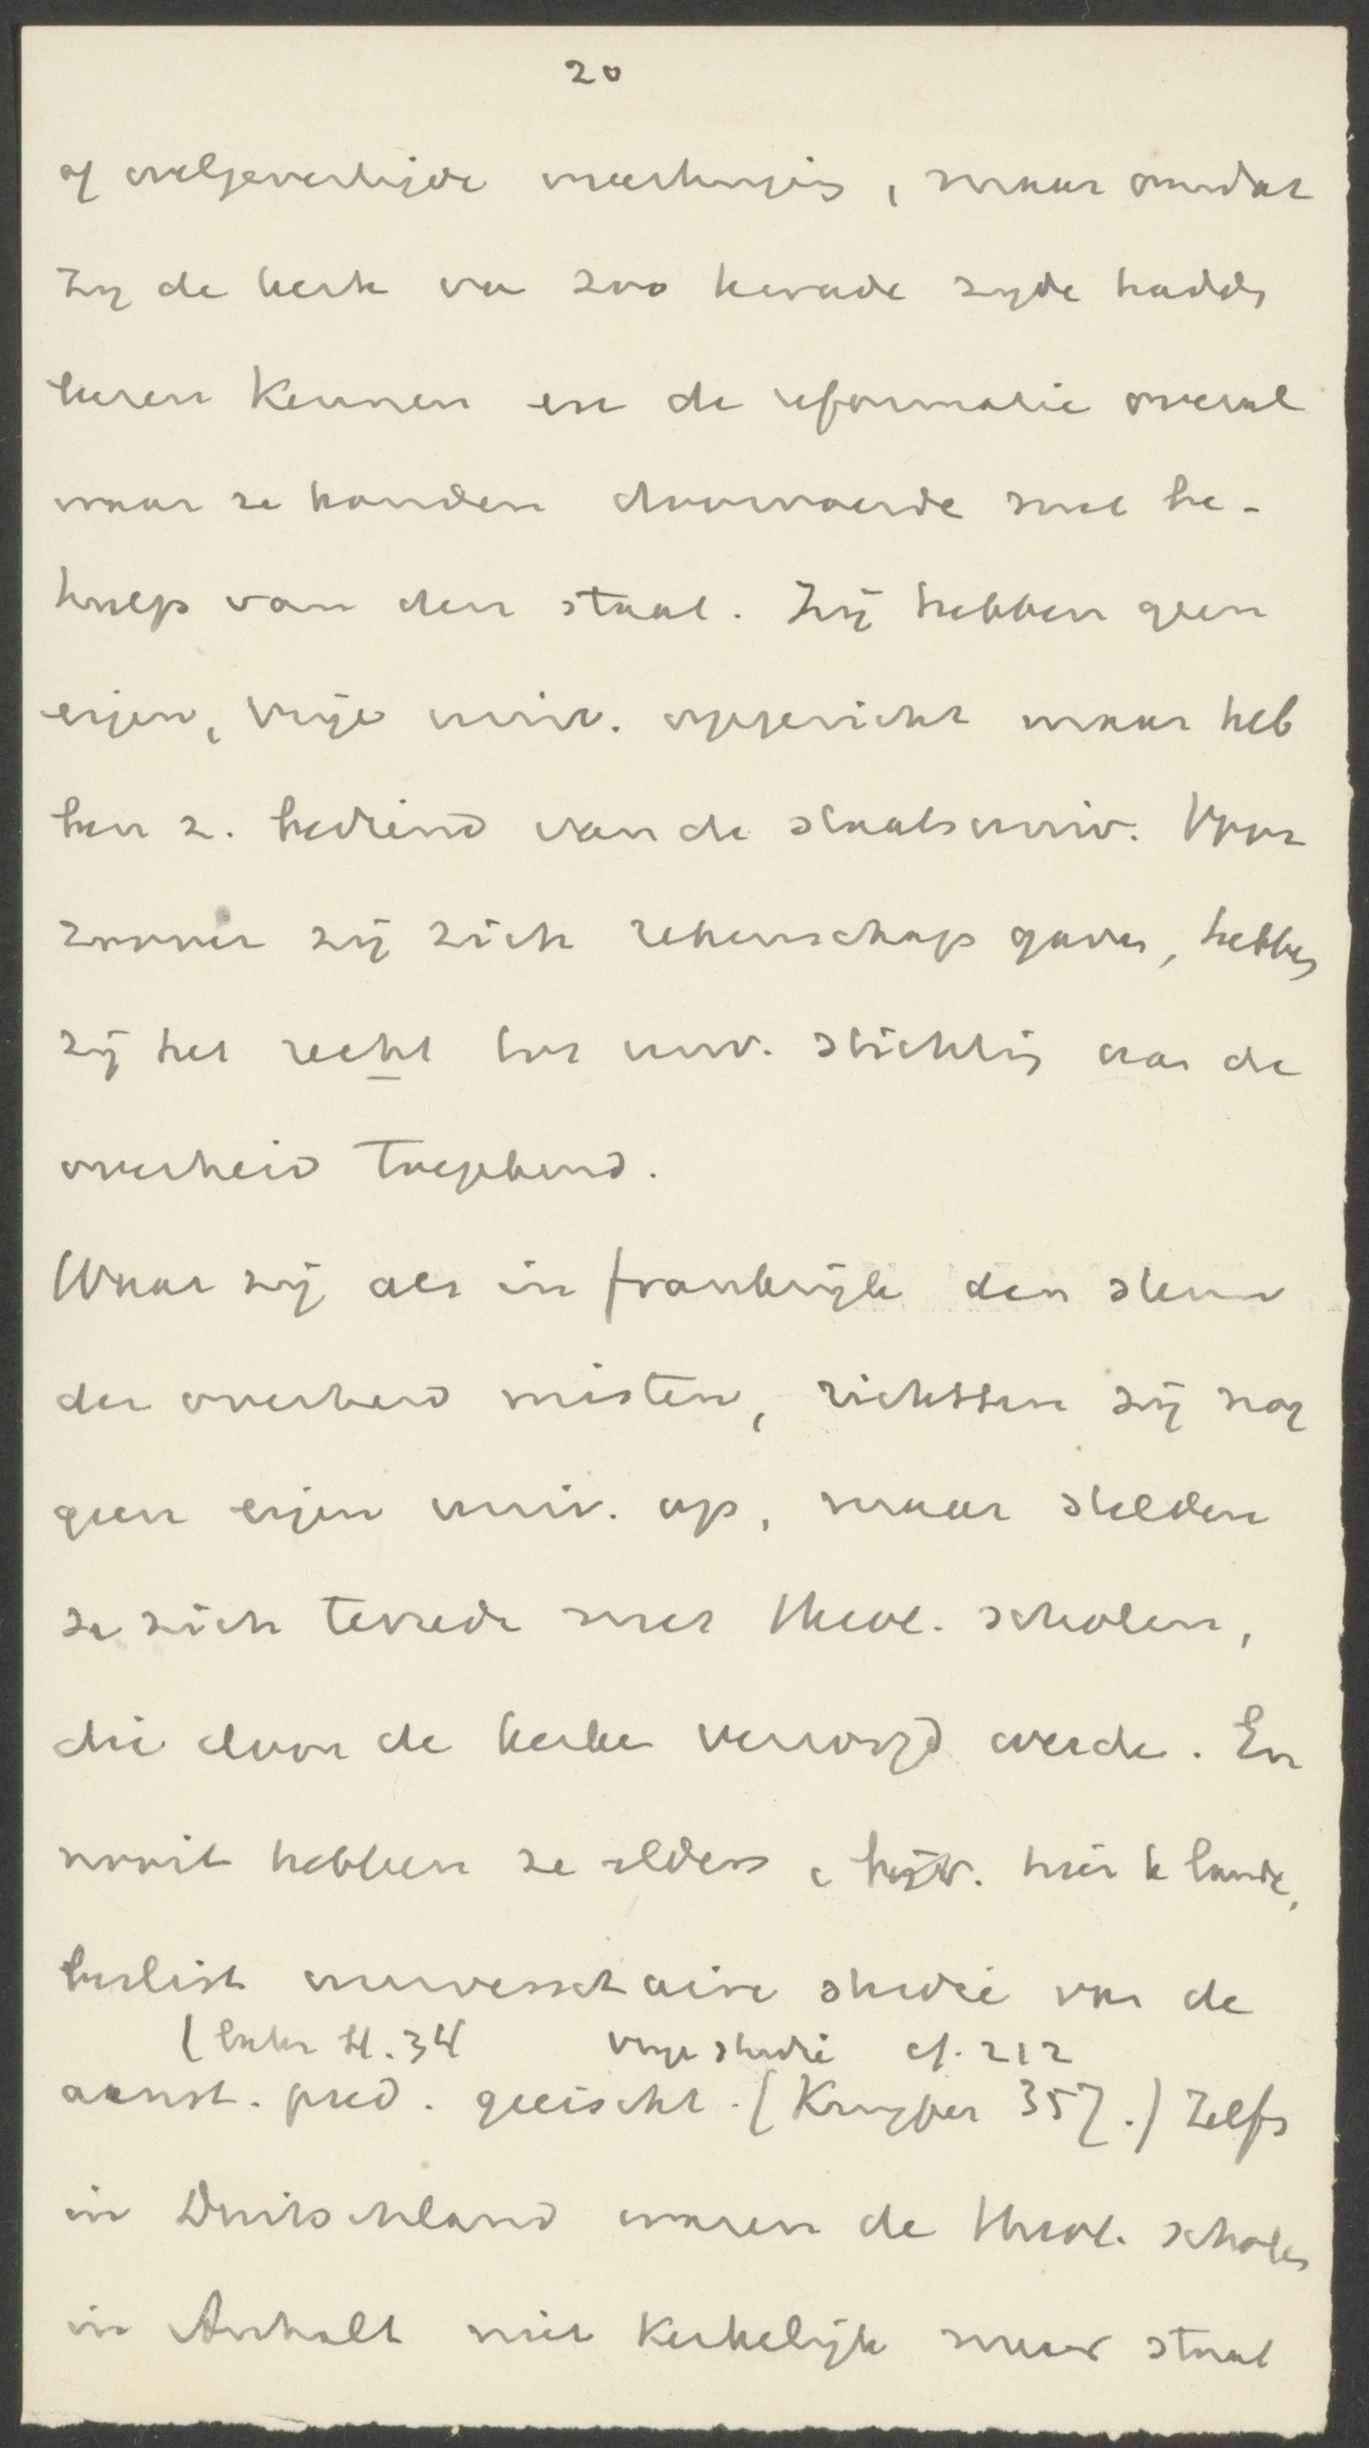 20
of welgevestigde overtuiging, maar omdat
Zij de kerk van zoo kwade zijde hadden
leeren kennen en de reformatie overal
waar ze konden doorvoerde met be-
hulp van den staat. Zij hebben geen
eigen, vrije univ. opgericht maar heb
ben z. bediend van de staatsuniv. Voor
zoover zij zich rekenschap gaven, hebben
zij het recht tot univ. stichting aan de
overheid toegekend.
Waar zij als in frankrijk den steun
der overheid misten, richtten zij nog
geen eigen univ. op, maar stelden
ze zich tevrede met theol. scholen,
die door de kerken verzorgd werden. En
nooit hebben ze elders, bijv. hier te lande,
beslist universitaire studie van de
(later H. 34 vrije studie cf. 212
aanst. pred. geeischt. (Kuyper 357.) Zelfs
in Duitschland waren de theol. scholen
in Anhalt niet Kerkelijk maar staat